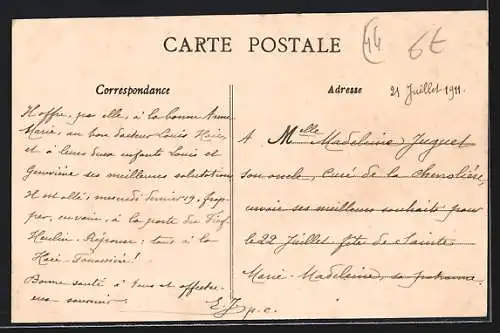 CARTE POSTALE
44
6€
Correspondance
Adresse
21 Juillet 1911.
Il offre, par elle, à la bonne Anne
Marie, au bon docteur Louis
et à leurs deux enfants Louis et
Geneviève ses meilleures salutations
Il est allé, mercredi dernier 19, frap-
per, en vain, à la porte du Fief
Heulin. Réponse: tous à la
Haie-Fouassière!
Bonne santé à tous et affectu-
eux souvenir.
E. J. p.c.
A Melle Madeleine Juguet
son oncle, curé de la Chevrolière,
envoie ses meilleurs souhaits pour
le 22 Juillet fête de Sainte
Marie-Madeleine, sa patronne.